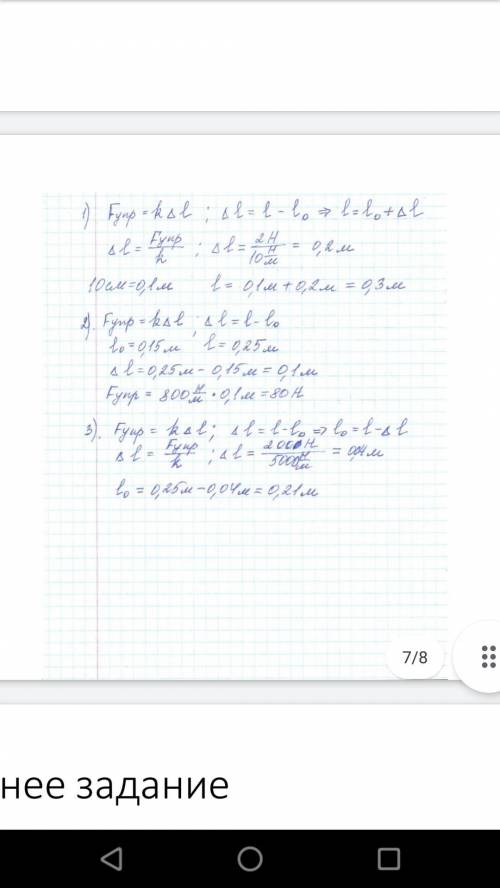 1) Fупр = kΔl ; Δl = l - l₀ ⇒ l = l₀ + Δl
Δl = Fупр/k ; Δl = 2Н/10 Н/м = 0,2м
10см = 0,1м l = 0,1м + 0,2м = 0,3м
2). Fупр = kΔl ; Δl = l - l₀
l₀ = 0,15м l = 0,25м
Δl = 0,25м - 0,15м = 0,1м
Fупр = 800 Н/м · 0,1м = 80Н
3). Fупр = kΔl; Δl = l - l₀ ⇒ l₀ = l - Δl
Δl = Fупр/k ; Δl = 200Н/5000 Н/м = 0,04м
l₀ = 0,25м - 0,04м = 0,21м
7/8
нее задание